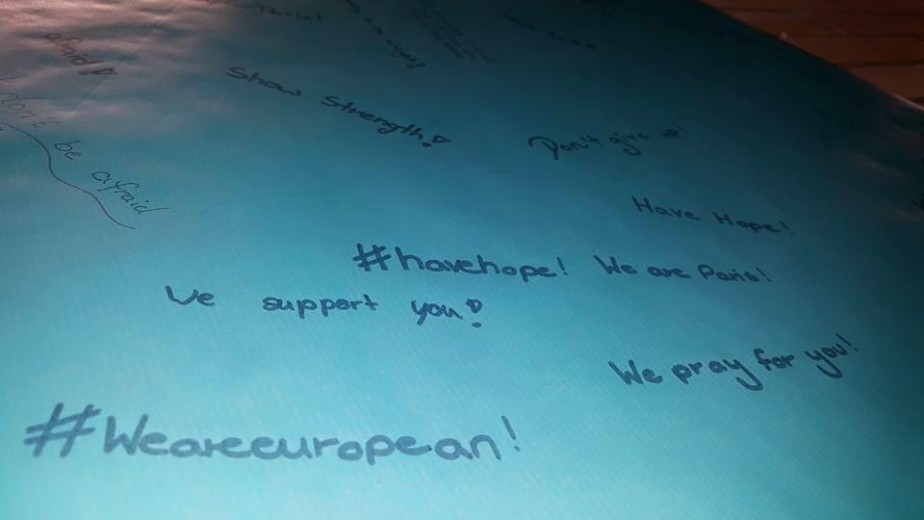 afraid!
Show Strength!
Don't give up!
don't be afraid
Have Hope!
#havehope! We are Paris!
We support you!
We pray for you!
#Weareeuropean!